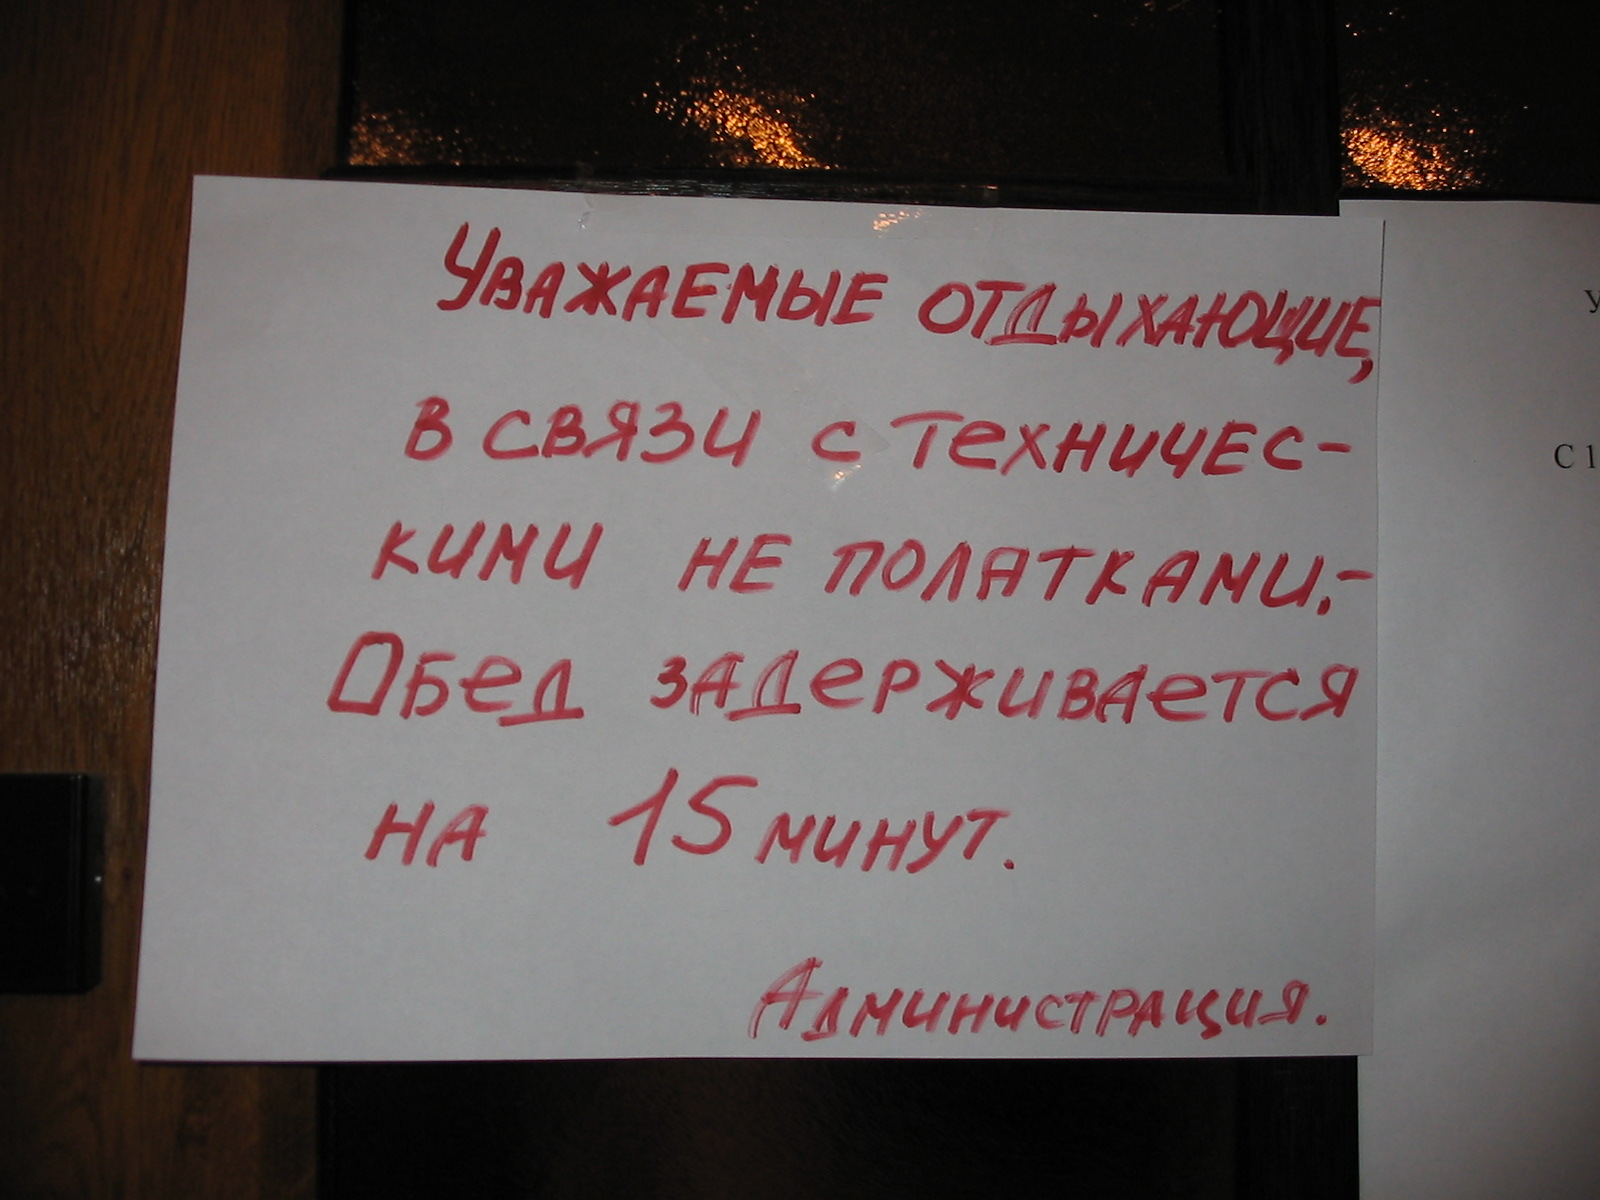 Уважаемые отдыхающие,
в связи с техничес-
кими не полятками.-
Обед задерживается
на 15 минут.
Администрация.
У
С 1